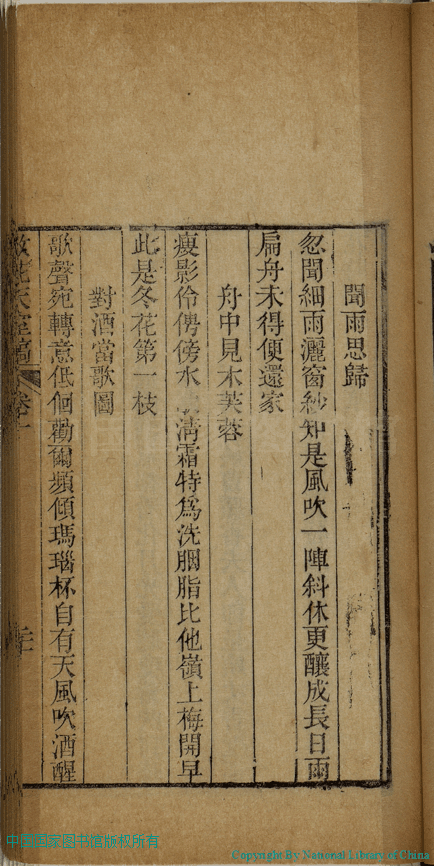 聞雨思歸
忽聞細雨灑窗紗知是風吹一陣斜休更釀成長日雨
扁舟未得便還家
舟中見木芙蓉
瘦影伶俜傍水 清霜特爲洗胭脂比他嶺上梅開早
此是冬花第一枝
對酒當歌圖
歌聲宛轉意低徊勸爾頻傾瑪瑙杯自有天風吹酒醒
卷十
中国国家图书馆版权所有
Copyright By National Library of China